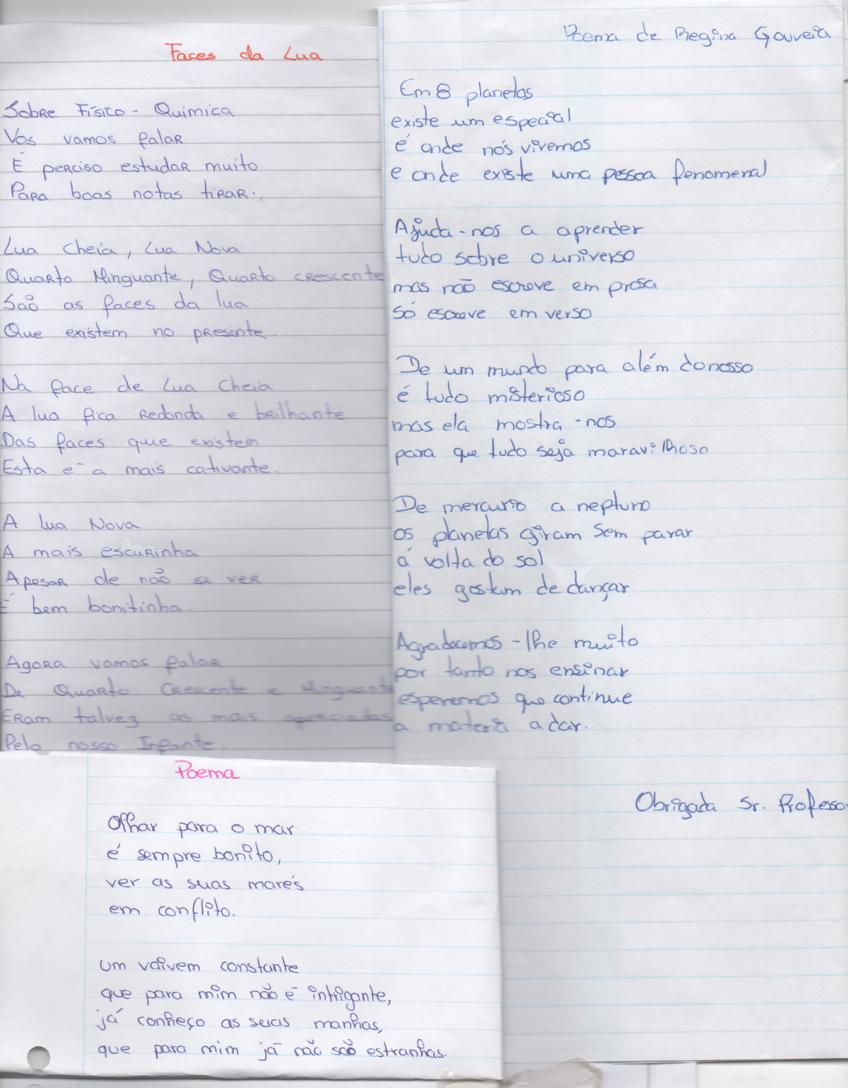 Faces da Lua
Sobre Físico-Química
Vos vamos falar
É perciso estudar muito
Para boas notas tirar.
Lua Cheia, Lua Nova
Quarto Minguante, Quarto crescente
São as faces da lua
Que existem no presente.
Na face de Lua Cheia
A lua fica Redonda e brilhante
Das faces que existem
Esta é a mais cativante.
A Lua Nova
A mais escurinha
Apesar de não se ver
É bem bonitinha.
Agora vamos falar
De Quarto Crescente e Minguante
Eram talvez as mais apreciadas
Pelo nosso Infante.
Poema de Regina Gouveia
Em 8 planetas
existe um especial
é onde nós vivemos
e onde existe uma pessoa fenomenal
Ajuda-nos a aprender
tudo sobre o universo
mas não escreve em prosa
só escreve em verso
De um mundo para além do nosso
é tudo misterioso
mas ela mostra-nos
para que tudo seja maravilhoso
De mercurio a neptuno
os planetas giram sem parar
á volta do sol
eles gostam de dançar
Agradecemos-lhe muito
por tanto nos ensinar
esperemos que continue
a materia a dar.
Obrigada Sr. Professo
Poema
Olhar para o mar
é sempre bonito,
ver as suas marés
em conflito.
Um vaivem constante
que para mim não é intrigante,
já conheço as suas manhas,
que para mim já não são estranhas.